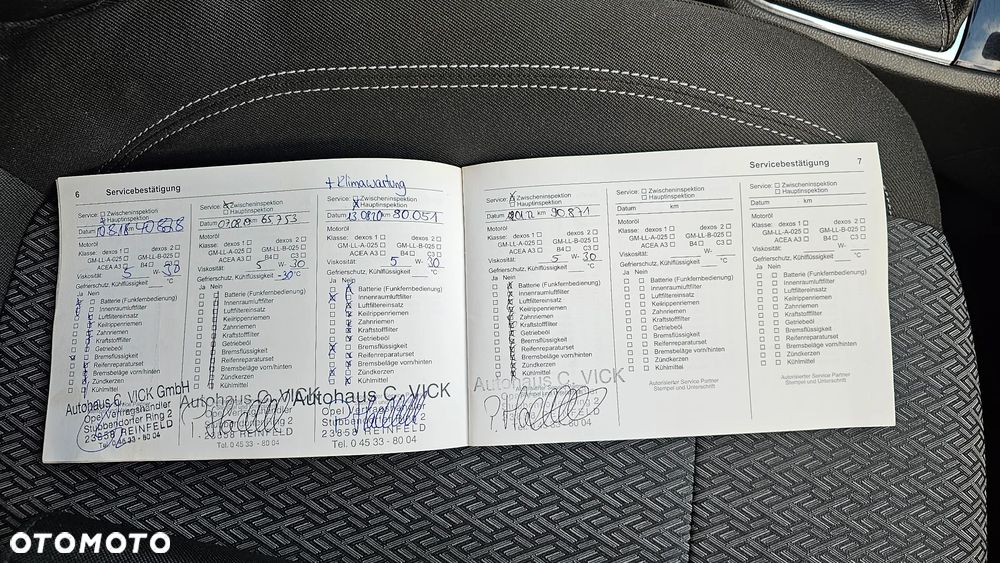 6 Servicebestätigung
Service: ☐ Zwischeninspektion
Hauptinspektion
Datum km
Motoröl
Klasse: dexos 1 ☐ dexos 2 ☐
GM-LL-A-025 ☐ GM-LL-B-025 ☐
ACEA A3 ☐ B4 ☐ C3 ☐
Viskosität: 5 W- 30
Gefrierschutz, Kühlflüssigkeit °C
Ja Nein
Batterie (Funkfernbedienung)
Innenraumluftfilter
Luftfiltereinsatz
Keilrippenriemen
Zahnriemen
Kraftstoffilter
Getriebeöl
Bremsflüssigkeit
Reifenreparaturset
Bremsbeläge vorn/hinten
Zündkerzen
Kühlmittel
Autohaus C. VICK GmbH
Opel Vertragshändler
Stubbendorfer Ring 2
23858 REINFELD
Tel. 0 45 33 - 80 04
Service: Zwischeninspektion
☐ Hauptinspektion
Datum 07.08.19 km 65 753
Motoröl
Klasse: dexos 1 ☐ dexos 2 ☐
GM-LL-A-025 ☐ GM-LL-B-025 ☐
ACEA A3 ☐ B4 ☐ C3 ☐
Viskosität: 5 W- 30
Gefrierschutz, Kühlflüssigkeit -30 °C
Ja Nein
Batterie (Funkfernbedienung)
Innenraumluftfilter
Luftfiltereinsatz
Keilrippenriemen
Zahnriemen
Kraftstoffilter
Getriebeöl
Bremsflüssigkeit
Reifenreparaturset
Bremsbeläge vorn/hinten
Zündkerzen
Kühlmittel
Autohaus C. VICK
23858 REINFELD
Tel. 0 45 33 - 80 04
+ Klimawartung
Service: Zwischeninspektion
Hauptinspektion
Datum 13.08.20 km 80.051
Motoröl
Klasse: dexos 1 ☐ dexos 2 ☐
GM-LL-A-025 ☐ GM-LL-B-025 ☐
ACEA A3 ☐ B4 ☐ C3 ☐
Viskosität: 5 W- 30
Gefrierschutz, Kühlflüssigkeit °C
Ja Nein
Batterie (Funkfernbedienung)
Innenraumluftfilter
Luftfiltereinsatz
Keilrippenriemen
Zahnriemen
Kraftstoffilter
Getriebeöl
Bremsflüssigkeit
Reifenreparaturset
Bremsbeläge vorn/hinten
Zündkerzen
Kühlmittel
Autohaus C. VICK
Opel Vertragshändler
Stubbendorfer Ring 2
23858 REINFELD
Tel. 0 45 33 - 80 04
Servicebestätigung 7
Service: Zwischeninspektion
☐ Hauptinspektion
Datum km 90.871
Motoröl
Klasse: dexos 1 ☐ dexos 2 ☐
GM-LL-A-025 ☐ GM-LL-B-025 ☐
ACEA A3 ☐ B4 ☐ C3 ☐
Viskosität: 5 W- 30
Gefrierschutz, Kühlflüssigkeit °C
Ja Nein
Batterie (Funkfernbedienung)
Innenraumluftfilter
Luftfiltereinsatz
Keilrippenriemen
Zahnriemen
Kraftstoffilter
Getriebeöl
Bremsflüssigkeit
Reifenreparaturset
Bremsbeläge vorn/hinten
Zündkerzen
Kühlmittel
Autohaus C. VICK
Service: ☐ Zwischeninspektion
☐ Hauptinspektion
Datum km
Motoröl
Klasse: dexos 1 ☐ dexos 2 ☐
GM-LL-A-025 ☐ GM-LL-B-025 ☐
ACEA A3 ☐ B4 ☐ C3 ☐
Viskosität: W-
Gefrierschutz, Kühlflüssigkeit °C
Ja Nein
☐ ☐ Batterie (Funkfernbedienung)
☐ ☐ Innenraumluftfilter
☐ ☐ Luftfiltereinsatz
☐ ☐ Keilrippenriemen
☐ ☐ Zahnriemen
☐ ☐ Kraftstoffilter
☐ ☐ Getriebeöl
☐ ☐ Bremsflüssigkeit
☐ ☐ Reifenreparaturset
☐ ☐ Bremsbeläge vorn/hinten
☐ ☐ Zündkerzen
☐ ☐ Kühlmittel
Autorisierter Service Partner
Stempel und Unterschrift
Service: ☐ Zwischeninspektion
☐ Hauptinspektion
Datum km
Motoröl
Klasse: dexos 1 ☐ dexos 2 ☐
GM-LL-A-025 ☐ GM-LL-B-025 ☐
ACEA A3 ☐ B4 ☐ C3 ☐
Viskosität: W-
Gefrierschutz, Kühlflüssigkeit °C
Ja Nein
☐ ☐ Batterie (Funkfernbedienung)
☐ ☐ Innenraumluftfilter
☐ ☐ Luftfiltereinsatz
☐ ☐ Keilrippenriemen
☐ ☐ Zahnriemen
☐ ☐ Kraftstoffilter
☐ ☐ Getriebeöl
☐ ☐ Bremsflüssigkeit
☐ ☐ Reifenreparaturset
☐ ☐ Bremsbeläge vorn/hinten
☐ ☐ Zündkerzen
☐ ☐ Kühlmittel
Autorisierter Service Partner
Stempel und Unterschrift
OTOMOTO